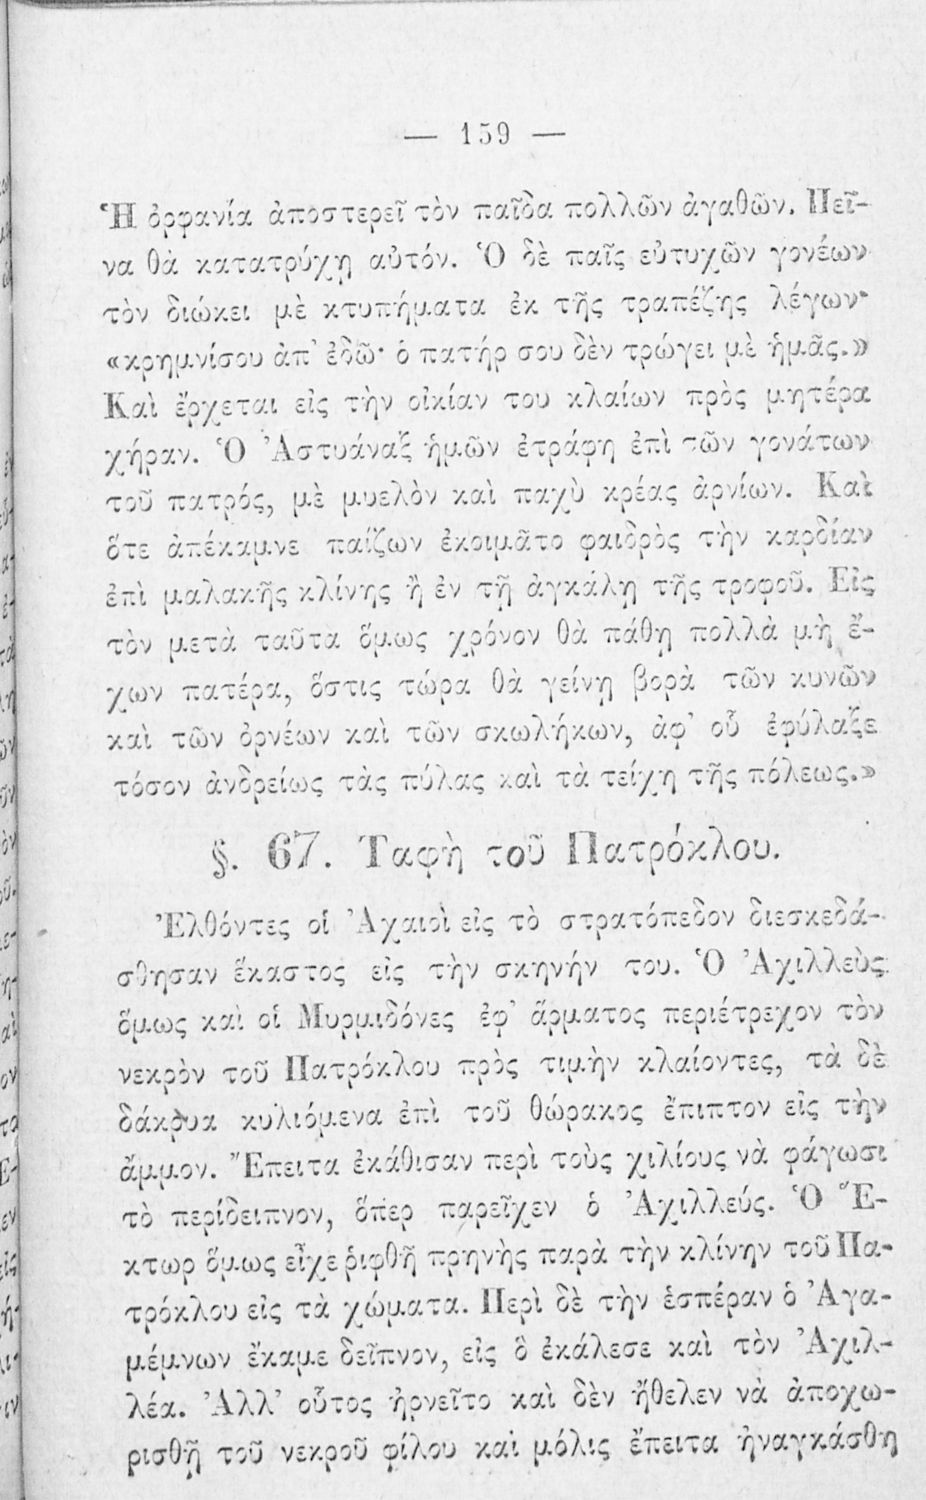 — 159 —
Ἡ ὀρφανία ἀποστερεῖ τὸν παῖδα πολλῶν ἀγαθῶν. Πεῖ-
να θὰ κατατρύχῃ αὐτόν. Ὁ δὲ παῖς εὐτυχῶν γονέων
τὸν διώκει μὲ κτυπήματα ἐκ τῆς τραπέζης λέγων·
«κρημνίσου ἀπ’ ἐδῶ· ὁ πατήρ σου δὲν τρώγει μὲ ἡμᾶς.»
Καὶ ἔρχεται εἰς τὴν οἰκίαν του κλαίων πρὸς μητέρα
χήραν. Ὁ Ἀστυάναξ ἡμῶν ἐτράφη ἐπὶ τῶν γονάτων
τοῦ πατρός, μὲ μυελὸν καὶ παχὺ κρέας ἀρνίων. Καὶ
ὅτε ἀπέκαμνε παίζων ἐκοιμᾶτο φαιδρὸς τὴν καρδίαν
ἐπὶ μαλακῆς κλίνης ἢ ἐν τῇ ἀγκάλῃ τῆς τροφοῦ. Εἰς
τὸν μετὰ ταῦτα ὅμως χρόνον θὰ πάθῃ πολλὰ μὴ ἔ-
χων πατέρα, ὅστις τώρα θὰ γείνῃ βορὰ τῶν κυνῶν
καὶ τῶν ὀρνέων καὶ τῶν σκωλήκων, ἀφ’ οὗ ἐφύλαξε
τόσον ἀνδρείως τὰς πύλας καὶ τὰ τείχη τῆς πόλεως.»
§. 67. Ταφὴ τοῦ Πατρόκλου.
Ἐλθόντες οἱ Ἀχαιοὶ εἰς τὸ στρατόπεδον διεσκεδά-
σθησαν ἕκαστος εἰς τὴν σκηνήν του. Ὁ Ἀχιλλεὺς
ὅμως καὶ οἱ Μυρμιδόνες ἐφ’ ἅρματος περιέτρεχον τὸν
νεκρὸν τοῦ Πατρόκλου πρὸς τιμὴν κλαίοντες, τὰ δὲ
δάκρυα κυλιόμενα ἐπὶ τοῦ θώρακος ἔπιπτον εἰς τὴν
ἄμμον. Ἔπειτα ἐκάθισαν περὶ τοὺς χιλίους νὰ φάγωσι
τὸ περίδειπνον, ὅπερ παρεῖχεν ὁ Ἀχιλλεύς. Ὁ Ἕ-
κτωρ ὅμως εἶχε ῥιφθῆ πρηνὴς παρὰ τὴν κλίνην τοῦ Πα-
τρόκλου εἰς τὰ χώματα. Περὶ δὲ τὴν ἑσπέραν ὁ Ἀγα-
μέμνων ἔκαμε δεῖπνον, εἰς ὃ ἐκάλεσε καὶ τὸν Ἀχιλ-
λέα. Ἀλλ’ οὗτος ἠρνεῖτο καὶ δὲν ἤθελεν νὰ ἀποχω-
ρισθῇ τοῦ νεκροῦ φίλου καὶ μόλις ἔπειτα ἠναγκάσθη